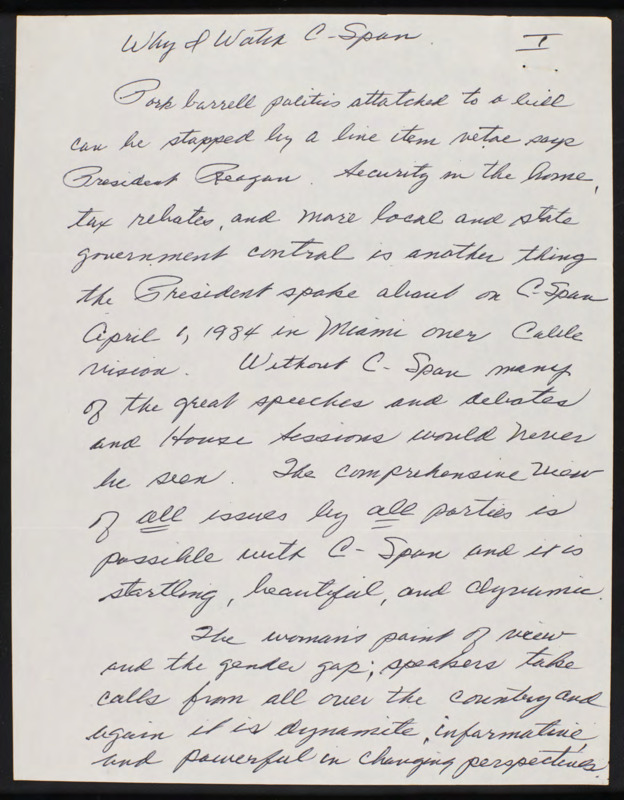 Why I Watch C-Span
I
Pork barrell politics attatched to a bill
can be stopped by a line item vetoe says
President Reagan. Security in the home,
tax rebates, and more local and state
government control is another thing
the President spoke about on C-Span
April 6, 1984 in Miami over Cable
vision. Without C-Span many
of the great speeches and debates
and House Sessions would never
be seen. The comprehensive view
of all issues by all parties is
possible with C-Span and it is
startling, beautiful, and dynamic.
The woman's point of view
and the gender gap; speakers take
calls from all over the country and
again it is dynamite, informative
and powerful in changing perspectives.